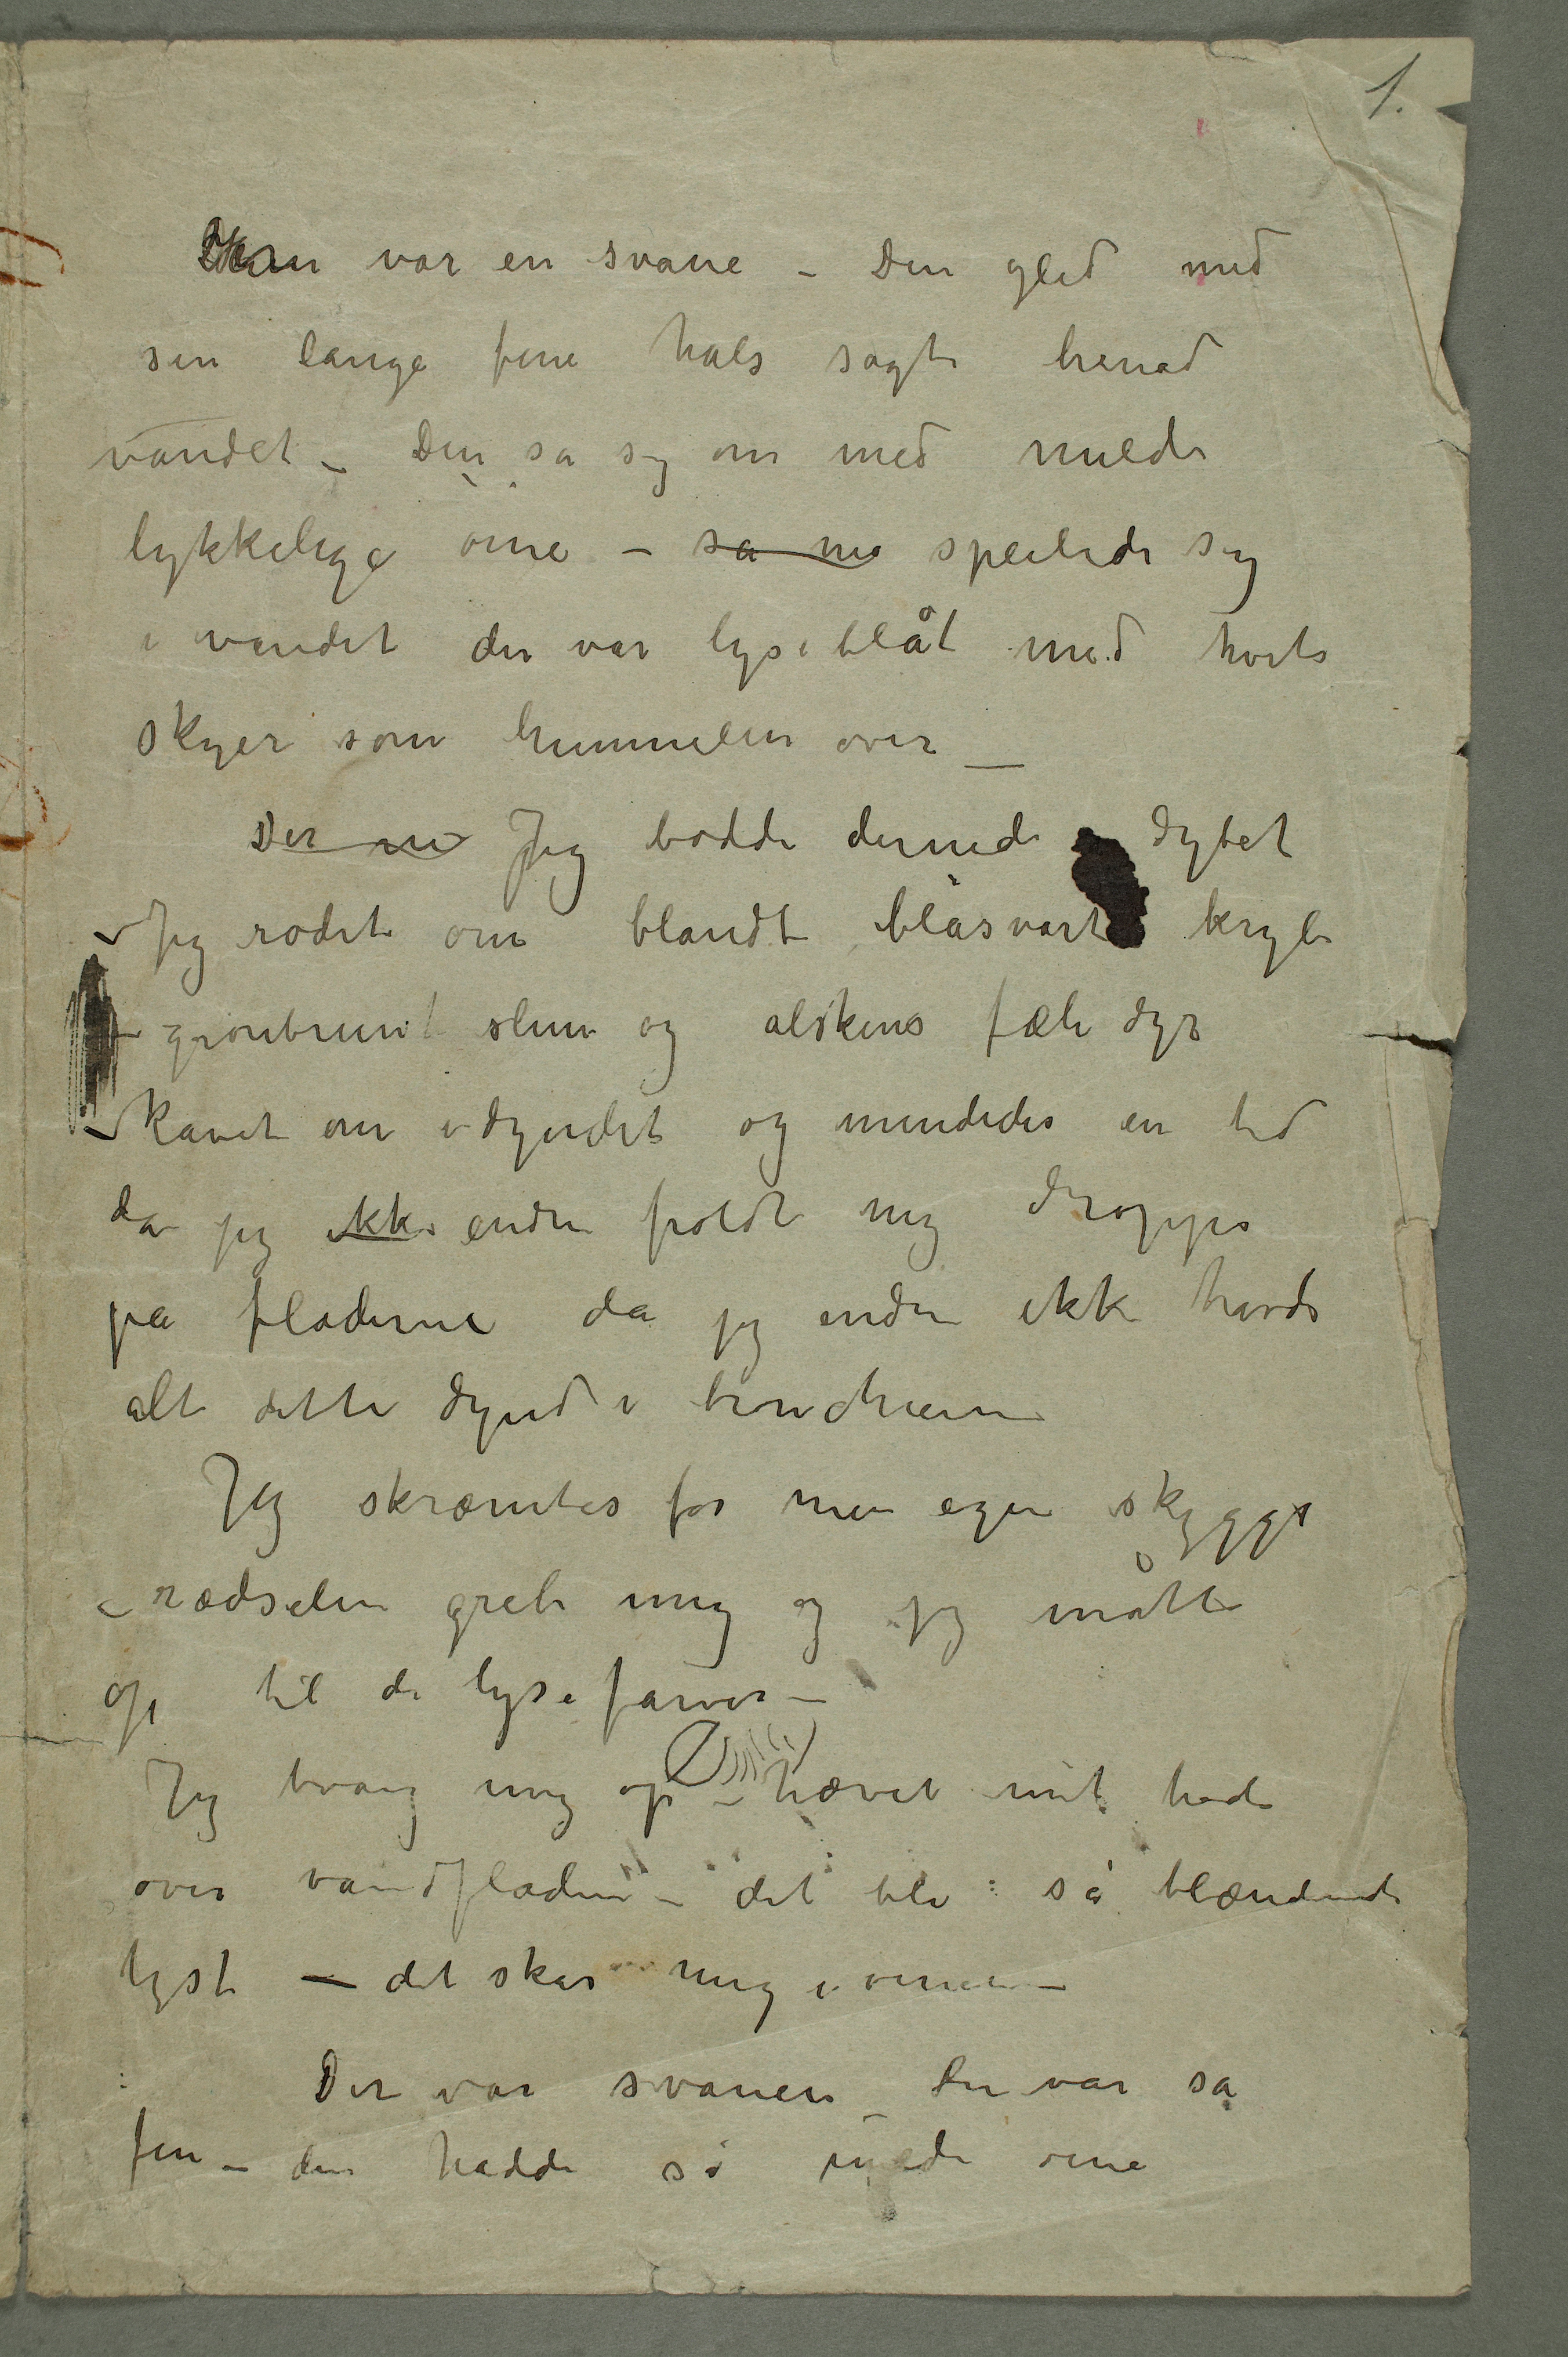 1.
var en svane – Den gled med
sin lange fine hals sagte henad
vandet – Den så sig om med milde
lykkelige öine – så ne speilede sig
i vandet der var lyseblåt med hvite
skyer som himmelen over –
Der ne Jeg bodde dernede i dybet
– Jeg rodet om blandt blåsvarte kryb
– grönbrunt slim og alskens fæle dyr
– kavet om i dyndet og mindedes en tid
da jeg ikke endnu holdt mig deroppe
på fladerne da jeg endnu ikke havde
alt dette dynd i
Jeg skræmtes for min egen skygge
– rædselen greb mig og jeg måtte
op til de lyse farver –
Jeg tvang mig op – hævet mit hode
over vandfladen – det ble så blændende
lyst – det skar mig i öinene –
Der var svanen – den var så
fin – den hadde så milde öine